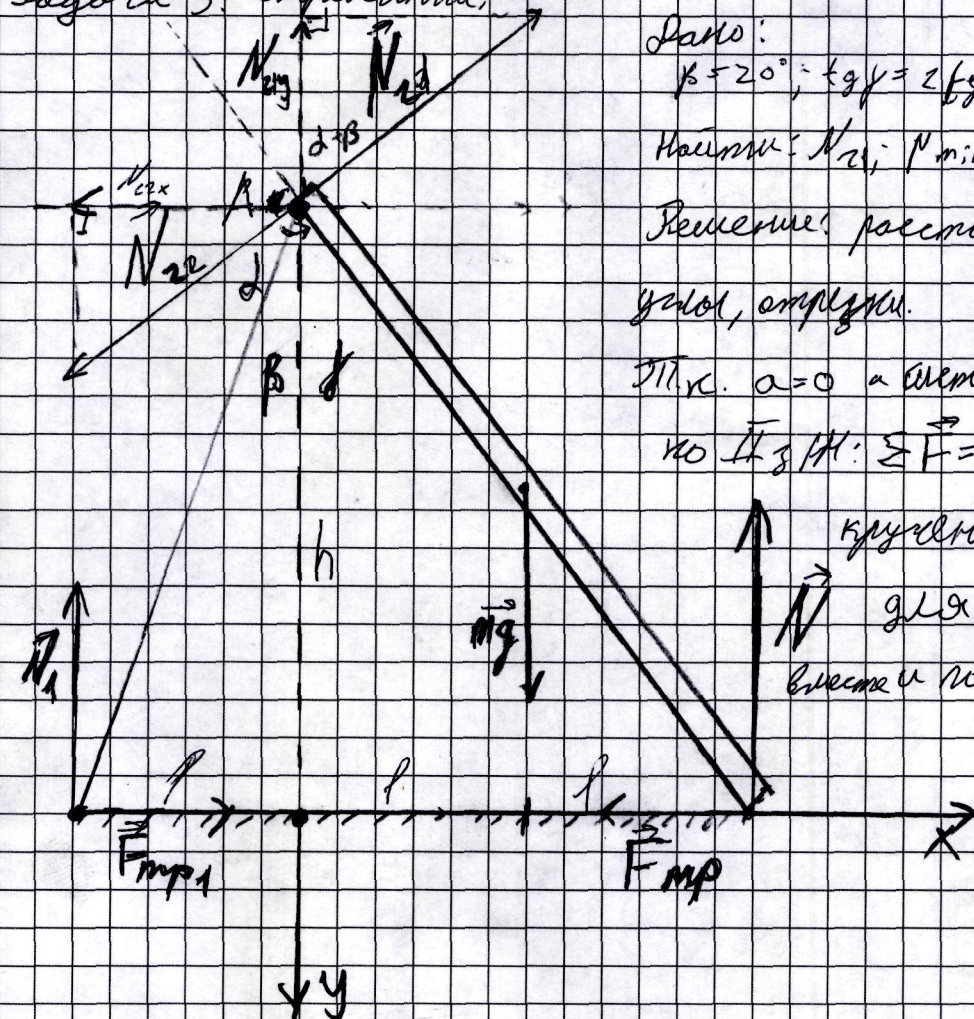 Задача 5.
Дано:
β=20°; tg γ = 2 tg
Найти: N₂₁; μ mi
Решение: расст
углы, отрезки.
Т.к. a=0
по II з Н: ΣF⃗ =
кручен
для
вместе и
N₂₁y
N⃗₂₁
α+β
N₂₂x
A
N₂₂
α
β
γ
h
mg⃗
N⃗
N⃗₁
l
l
l
F⃗тр₁
F⃗тр
x
y